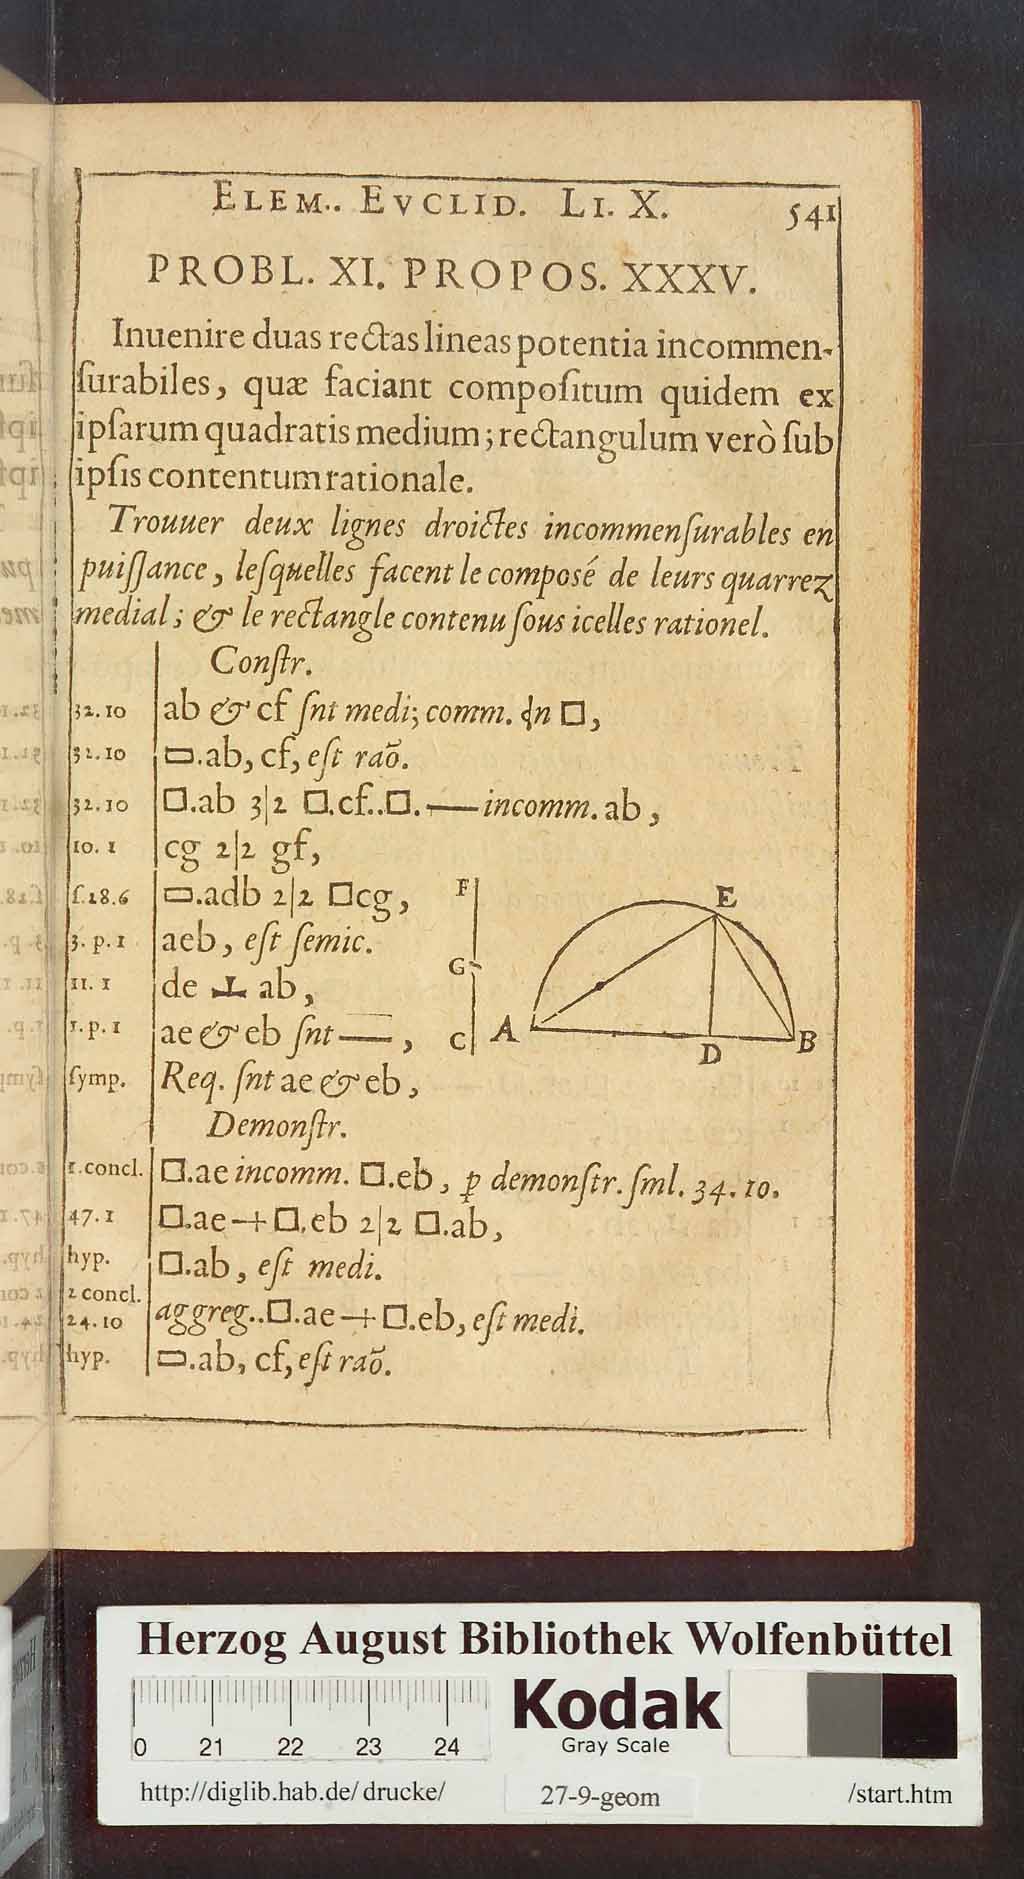 ELEM.. EVCLID. LI. X. 541
PROBL. XI. PROPOS. XXXV.
Inuenire duas rectas lineas potentia incommen-
ſurabiles, quæ faciant compoſitum quidem ex
ipſarum quadratis medium; rectangulum verò ſub
ipſis contentum rationale.
Trouuer deux lignes droictes incommenſurables en
puiſſance, leſquelles facent le composé de leurs quarrez
medial; & le rectangle contenu ſous icelles rationel.
Conſtr.
32.10 ab & cf ſnt medi; comm. □,
32.10 ▭.ab, cf, eſt rao̅.
32.10 □.ab 3|2 □.cf..□.— incomm. ab,
10.1 cg 2|2 gf,
ſ.18.6 ▭.adb 2|2 □cg,
3. p. 1 aeb, eſt ſemic.
11. 1 de ⊥ ab,
1. p. 1 ae & eb ſnt —,
ſymp. Req. ſnt ae & eb,
F
G
C
A
E
D
B
Demonſtr.
1.concl. □.ae incomm. □.eb, ꝑ demonſtr. ſml. 34. 10.
47. 1 □.ae + □.eb 2|2 □.ab,
hyp. □.ab, eſt medi.
2 concl.
24.10 aggreg..□.ae + □.eb, eſt medi.
hyp. ▭.ab, cf, eſt rao̅.
Herzog August Bibliothek Wolfenbüttel
0 21 22 23 24
Kodak
Gray Scale
http://diglib.hab.de/drucke/ 27-9-geom /start.htm